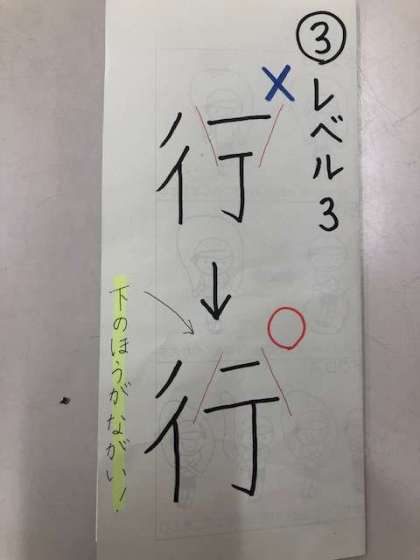 ③レベル3
×
行
↓
○
行
下のほうがながい!